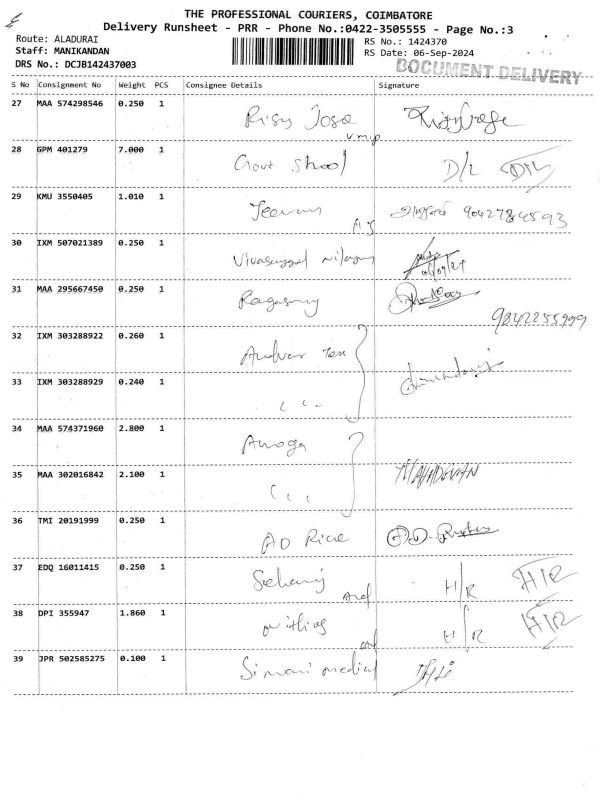 THE PROFESSIONAL COURIERS, COIMBATORE
Delivery Runsheet - PRR - Phone No.:0422-3505555 - Page No.:3
Route: ALADURAI
RS No.: 1424370
Staff: MANIKANDAN
RS Date: 06-Sep-2024
DRS No.: DCJB142437003
DOCUMENT DELIVERY
S No Consignment No Weight PCS Consignee Details Signature
27 MAA 574298546 0.250 1 Risy Jose
28 GPM 401279 7.000 1 Govt School D/L
29 KMU 3550405 1.010 1 Jeevan 9042784593
30 IXM 507021389 0.250 1
31 MAA 295667450 0.250 1 9042255999
32 IXM 303288922 0.260 1 Tex
33 IXM 303288929 0.240 1
34 MAA 574371960 2.800 1 Amoga
35 MAA 302016842 2.100 1 MAHADEVAN
36 TMI 20191999 0.250 1 AD Rice
37 EDQ 16011415 0.250 1 H/R H/R
38 DPI 355947 1.860 1 H/R H/R
39 JPR 502585275 0.100 1 Simani medical